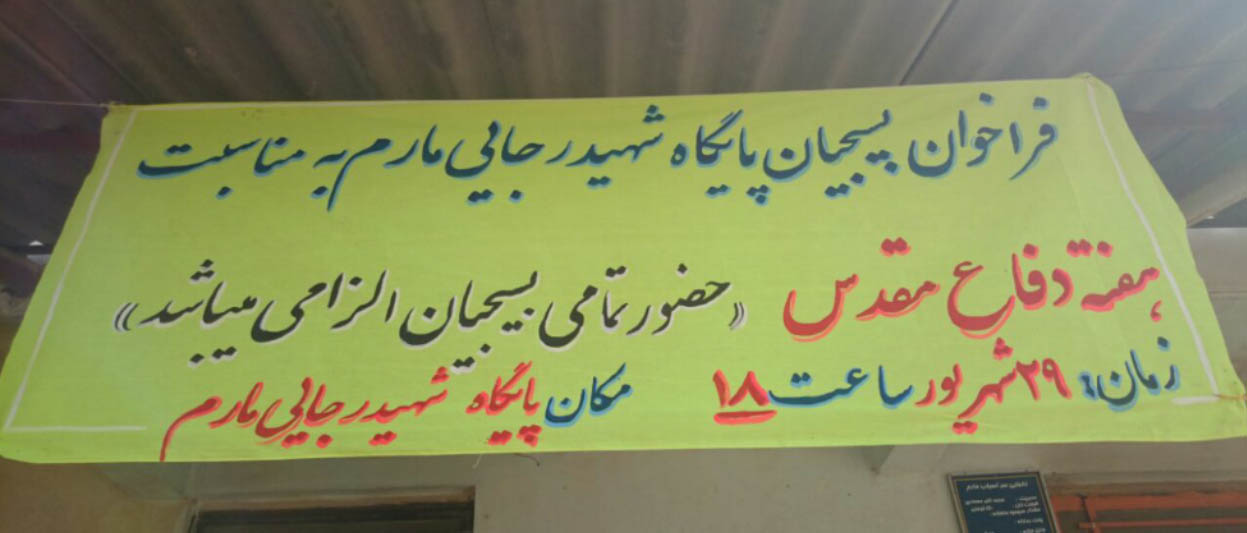 فراخوان بسیجیان پایگاه شهید رجایی مارم به مناسبت
هفته دفاع مقدس «حضور تمامی بسیجیان الزامی میباشد»
زمان: ۲۹ شهریور ساعت ۱۸ مکان پایگاه شهید رجایی مارم